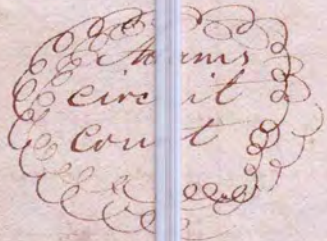 Adams
circuit
court